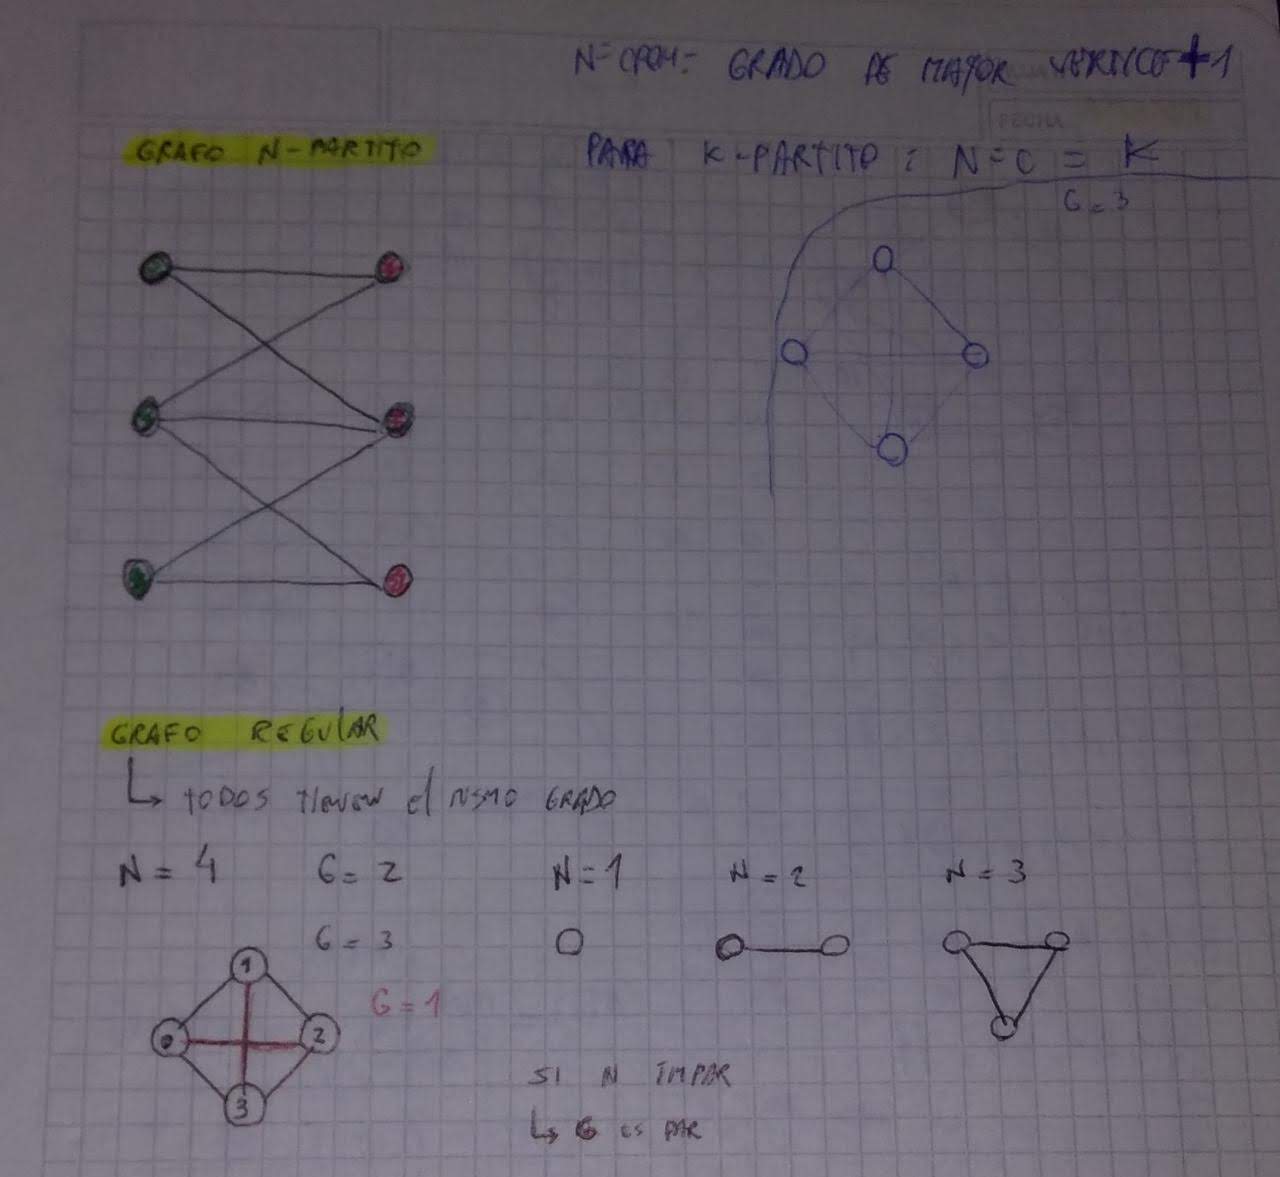 N=CROM= GRADO DE MAYOR VERTICE+1
FECHA
GRAFO N-PARTITO
PARA K-PARTITO: N=C = K
G=3
GRAFO REGULAR
↳ TODOS TIENEN el MISMO GRADO
N=4 G=2 N=1 N=2 N=3
G=3
G=1
1
0 2
3
SI N IMPAR
↳ G ES PAR